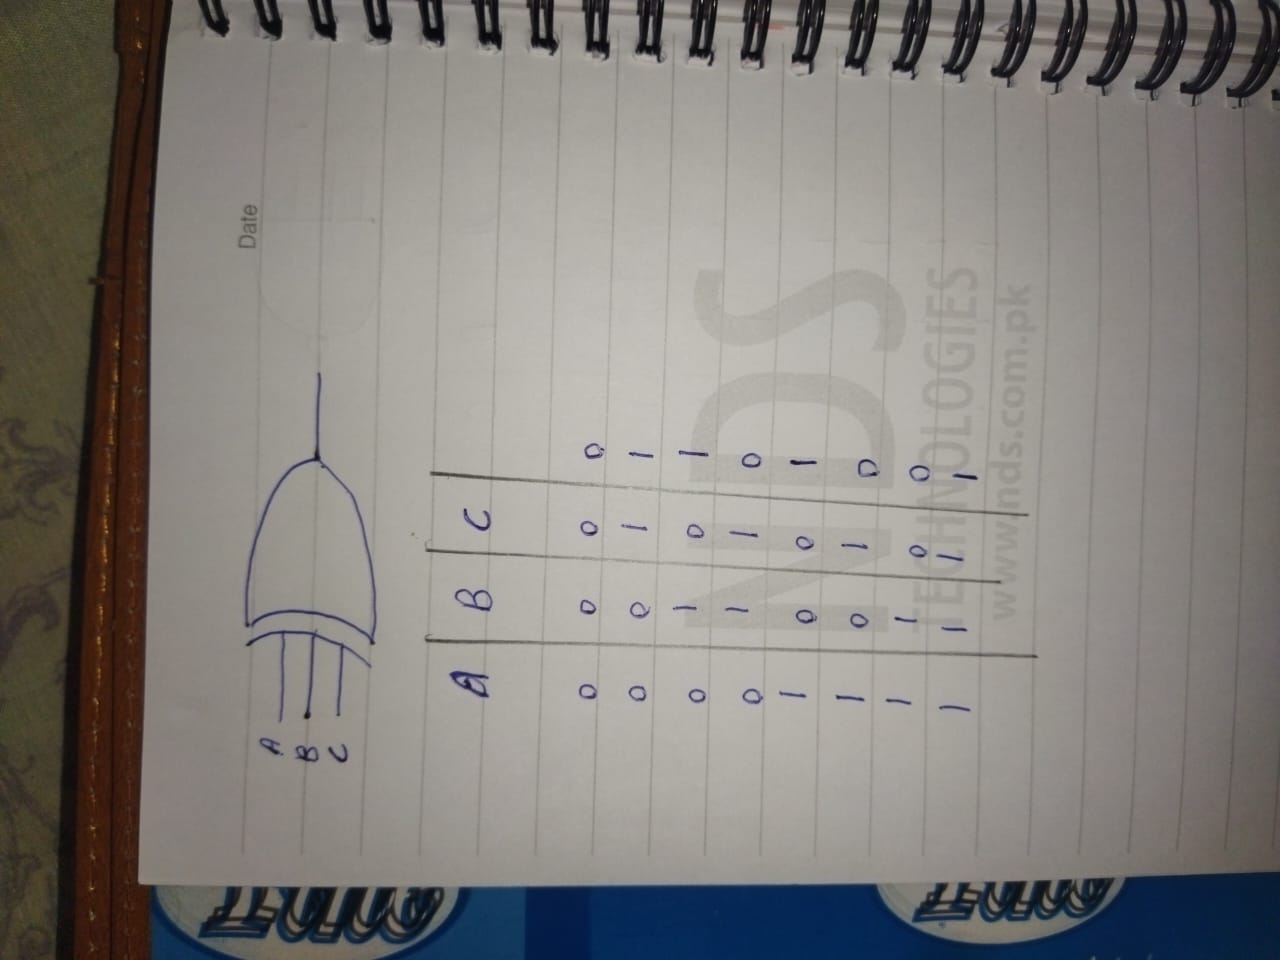 Date
A
B
C
A B C
0 0 0 0
0 0 1 1
0 1 0 1
0 1 1 0
1 0 0 1
1 0 1 0
1 1 0 0
1 1 1 1
NDS
TECHNOLOGIES
www.nds.com.pk